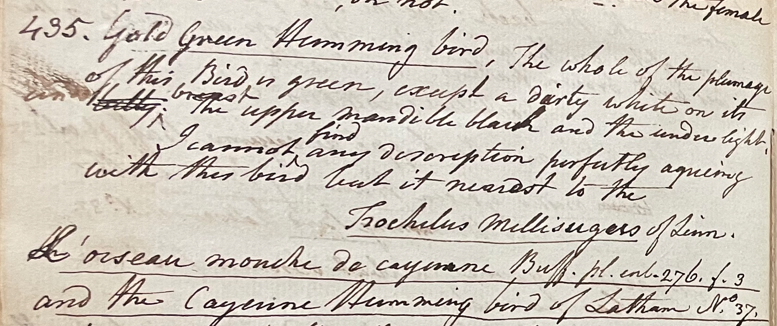 on not. the female
435. Gold Green Humming bird, The whole of the plumage
of this Bird is green, except a dirty white on its
under belly, breast The upper mandible black and the under light.
I cannot find any descreption perfectly agreing
with this bird but it nearest to the
Trochilus Mellisugers of Linn.
L'oiseau mouche de cayenne Buff. pl. enl. 276. f. 3
and the Cayenne Humming bird of Latham No. 37.